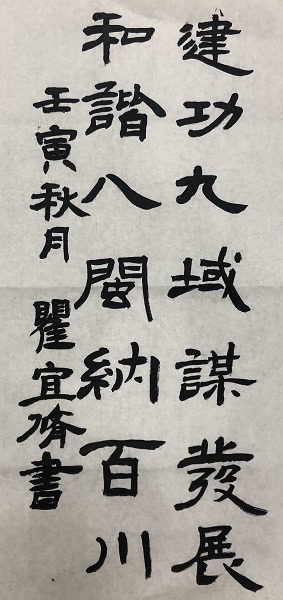 建功九域謀發展
和諧八閩納百川
壬寅秋月 瞿宜脩書